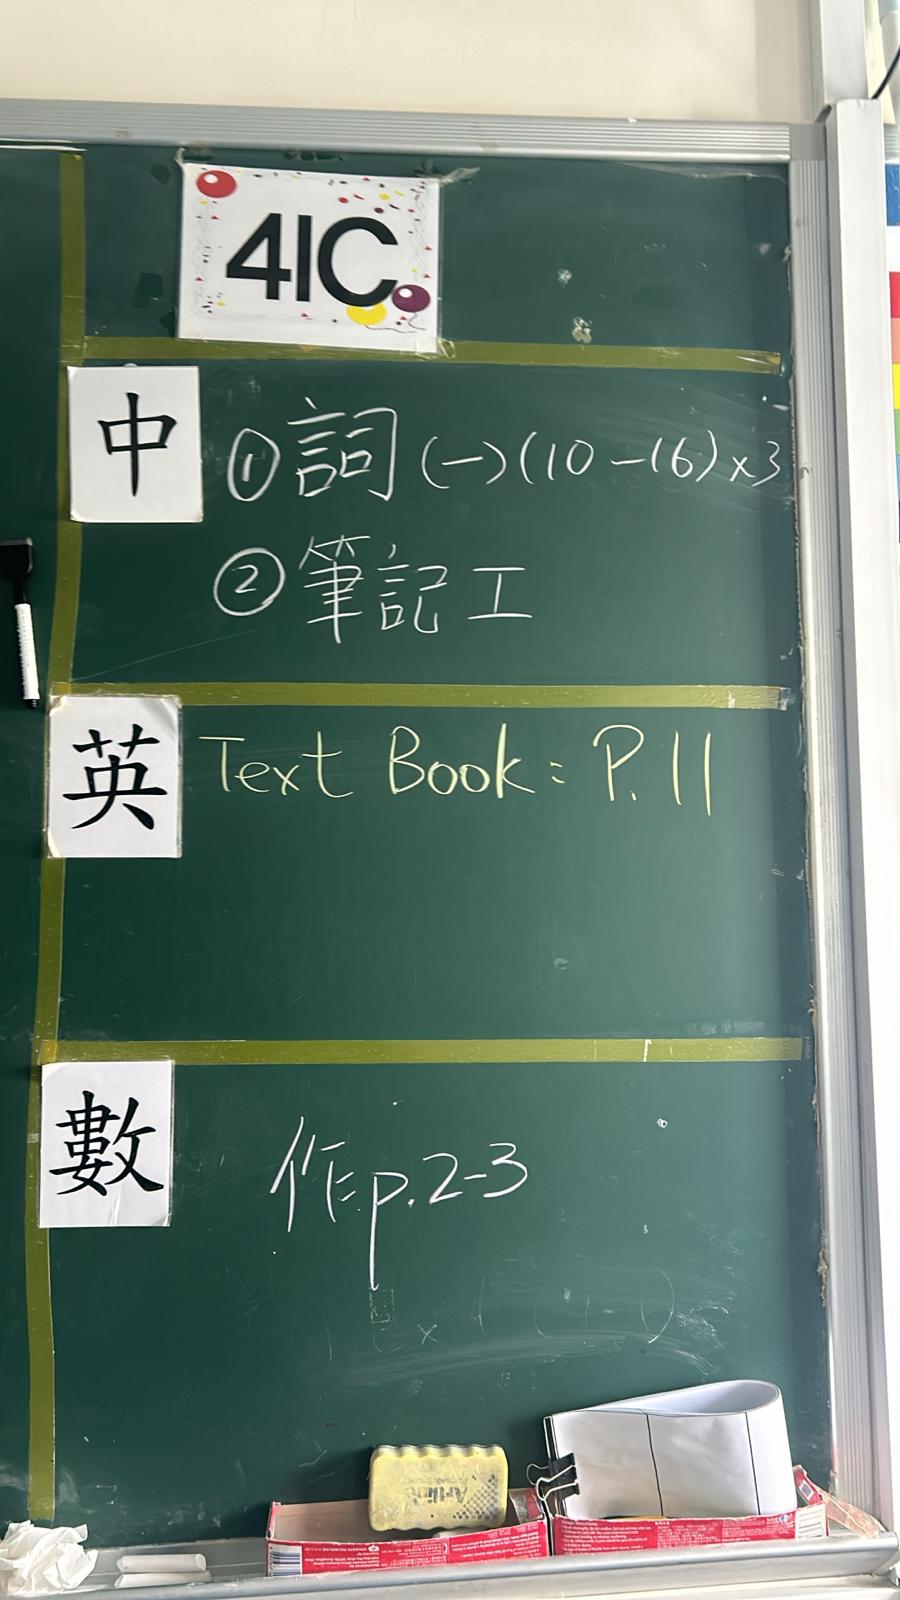 41C
中
①詞(一)(10-16)x3
②筆記工
英
Text Book: P.11
數
作p.2-3
Artline